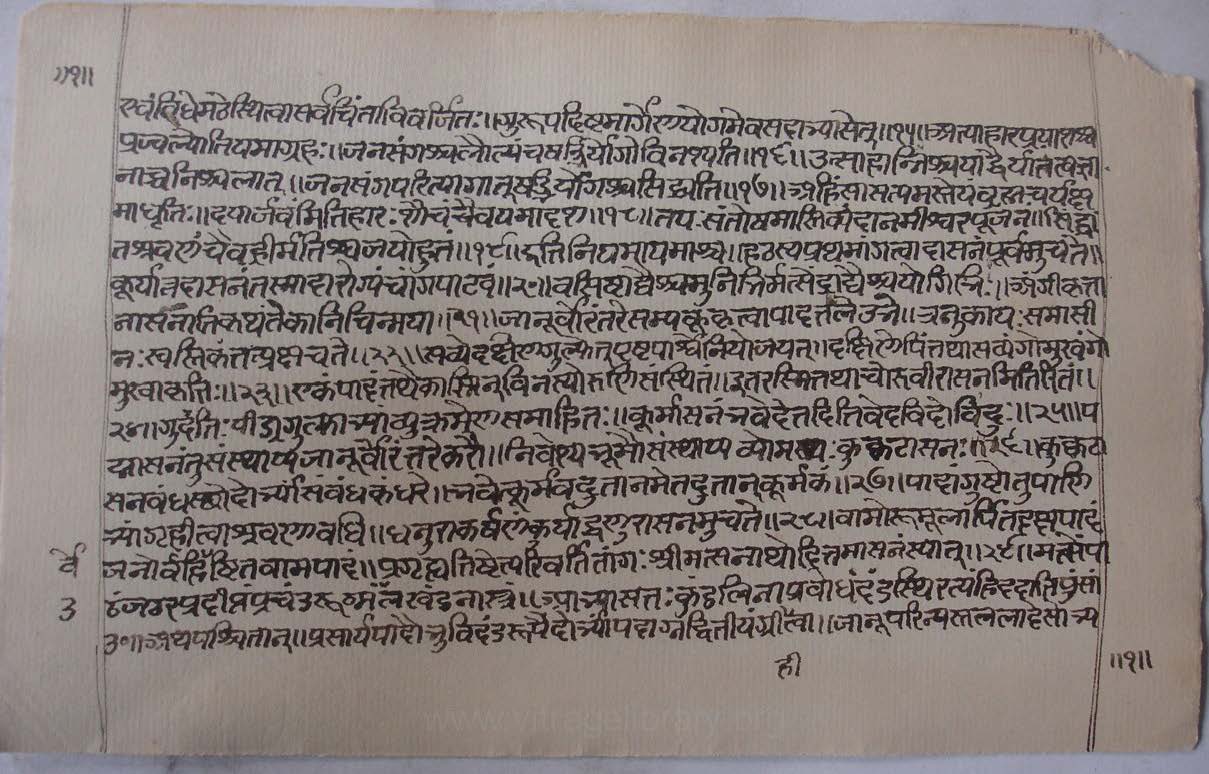 ॥१॥
एवंविधेमठेस्थित्वासर्वचिंताविवर्जितः॥गुरूपदिष्टमार्गेणयोगमेवसदाभ्यासेत्॥१५॥अत्याहारप्रयासश्च
प्रजल्पोनियमाग्रहः॥जनसंगश्चलौल्यंचषड्भिर्योगोविनश्यति॥१६॥उत्साहान्निश्चयाद्धैर्यातत्वज्ञा
नाच्चनिश्चलात्॥जनसंगपरित्यागात्षड्भिर्योगश्चसिद्ध्यति॥१७॥अहिंसासत्यमस्तेयंब्रह्मचर्यंक्ष
माधृतिः॥दयार्जवंमितिहारःशौचंचैवयमादश॥१८॥तपःसंतोषमास्तिकंदानमीश्वरपूजनं॥सिद्धां
तश्रवणंचैवह्रीर्मतिश्चजपोहुतं॥१९॥इतिनियमायमाश्च॥हठस्यप्रथमांगत्वादासनंपूर्वमुच्यते॥
कूर्यात्तदासनंतस्मादारोग्यंचांगपाटवं॥२०॥वसिष्टाद्यैश्चमुनिभिर्मत्सेंद्राद्यैश्चयोगिभिः॥अंगीकृता
नासनानिकथ्यतेकानिचिन्मया॥२१॥जानूर्वोरंतरेसम्यक्कृत्वापादतलेउभे॥ऋजुकायःसमासी
नःस्वस्तिकंतत्प्रक्षचते॥२२॥सव्येदक्षीणगुल्फंतुपृष्टपार्श्वेनियोजयेत्॥दक्षिणेपितथासव्यंगोमुखंगो
मुखाकृतिः॥२३॥एकंपादंतथैकस्मिन्विनस्योरूणिसंस्थितं॥इतरस्मिंतथाचोरुवीरासनमितिरितं॥
२४॥गुदंनिःपीड्यगुल्फाभ्याव्युक्रमेणसमाहितः॥कूर्मासनंभवेदेतदितिवेदविदोविदुः॥२५॥प
द्मासनंतुसंस्थाप्यजानूर्वोरंतरेकरौ॥निवेश्यभूमौसंस्थाप्यव्योमस्थःकुक्कटासनः॥२६॥कुक्कटा
सनबंधस्छोदोर्भ्यांसंबंधकंधरे॥भवेत्कूर्मवदुतानमेतदुतानकूर्मकं॥२७॥पादांगुष्टोतुपाणि
भ्यांगृहीत्वाश्रवणावधि॥धनुराकर्षणंकुर्याद्धणुरासनमुचते॥२८॥वामोरूमूलार्पितदक्षपादं
जनोर्वहिर्वेष्टितवामपादं॥प्रगृह्यतिष्टेत्परिवर्तितांगःश्रीमत्सनाथोदितमासनंस्यात्॥२९॥मत्सेंपी
ठंजठरप्रदीप्तंप्रचंडरूग्मंलखंडनास्त्रं॥अभ्यासतःकुंडलिनाप्रबोधंदंडस्थिरत्यंहिददातिपुंसां
३०॥अथपश्चितान्॥प्रसार्यपादौभुविदंडरूपैदोर्भ्यांपदाग्रद्वितीयंग्रीत्वा॥जानूपरिन्यस्तललाटेसोभ्य
र्वे
३
ही
॥१॥
www.vitragelibrary.org